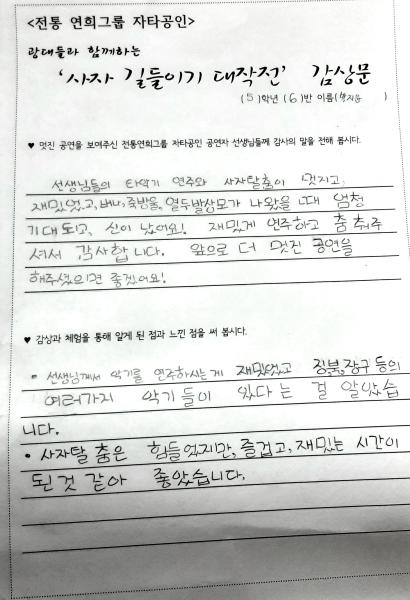 <전통 연희그룹 자타공인>
광대들과 함께하는
'사자 길들이기 대작전' 감상문
(5)학년 (6)반 이름(
♥ 멋진 공연을 보여주신 전통연희그룹 자타공인 공연자 선생님들께 감사의 말을 전해 봅시다.
선생님들의 타악기 연주와 사자탈춤이 멋지고,
재밌었고, 버나, 죽방울, 열두발상모가 나왔을 때 엄청
기대되고, 신이 났어요! 재밌게 연주하고 춤 춰주
셔서 감사합니다. 앞으로 더 멋진 공연을
해주셨으면 좋겠어요!
♥ 감상과 체험을 통해 알게 된 점과 느낀 점을 써 봅시다.
• 선생님께서 악기를 연주하시는게 재밌었고 징,북,장구 등의
여러가지 악기들이 있다는 걸 알았습
니다.
• 사자탈 춤은 힘들었지만, 즐겁고, 재밌는 시간이
된것 같아 좋았습니다.